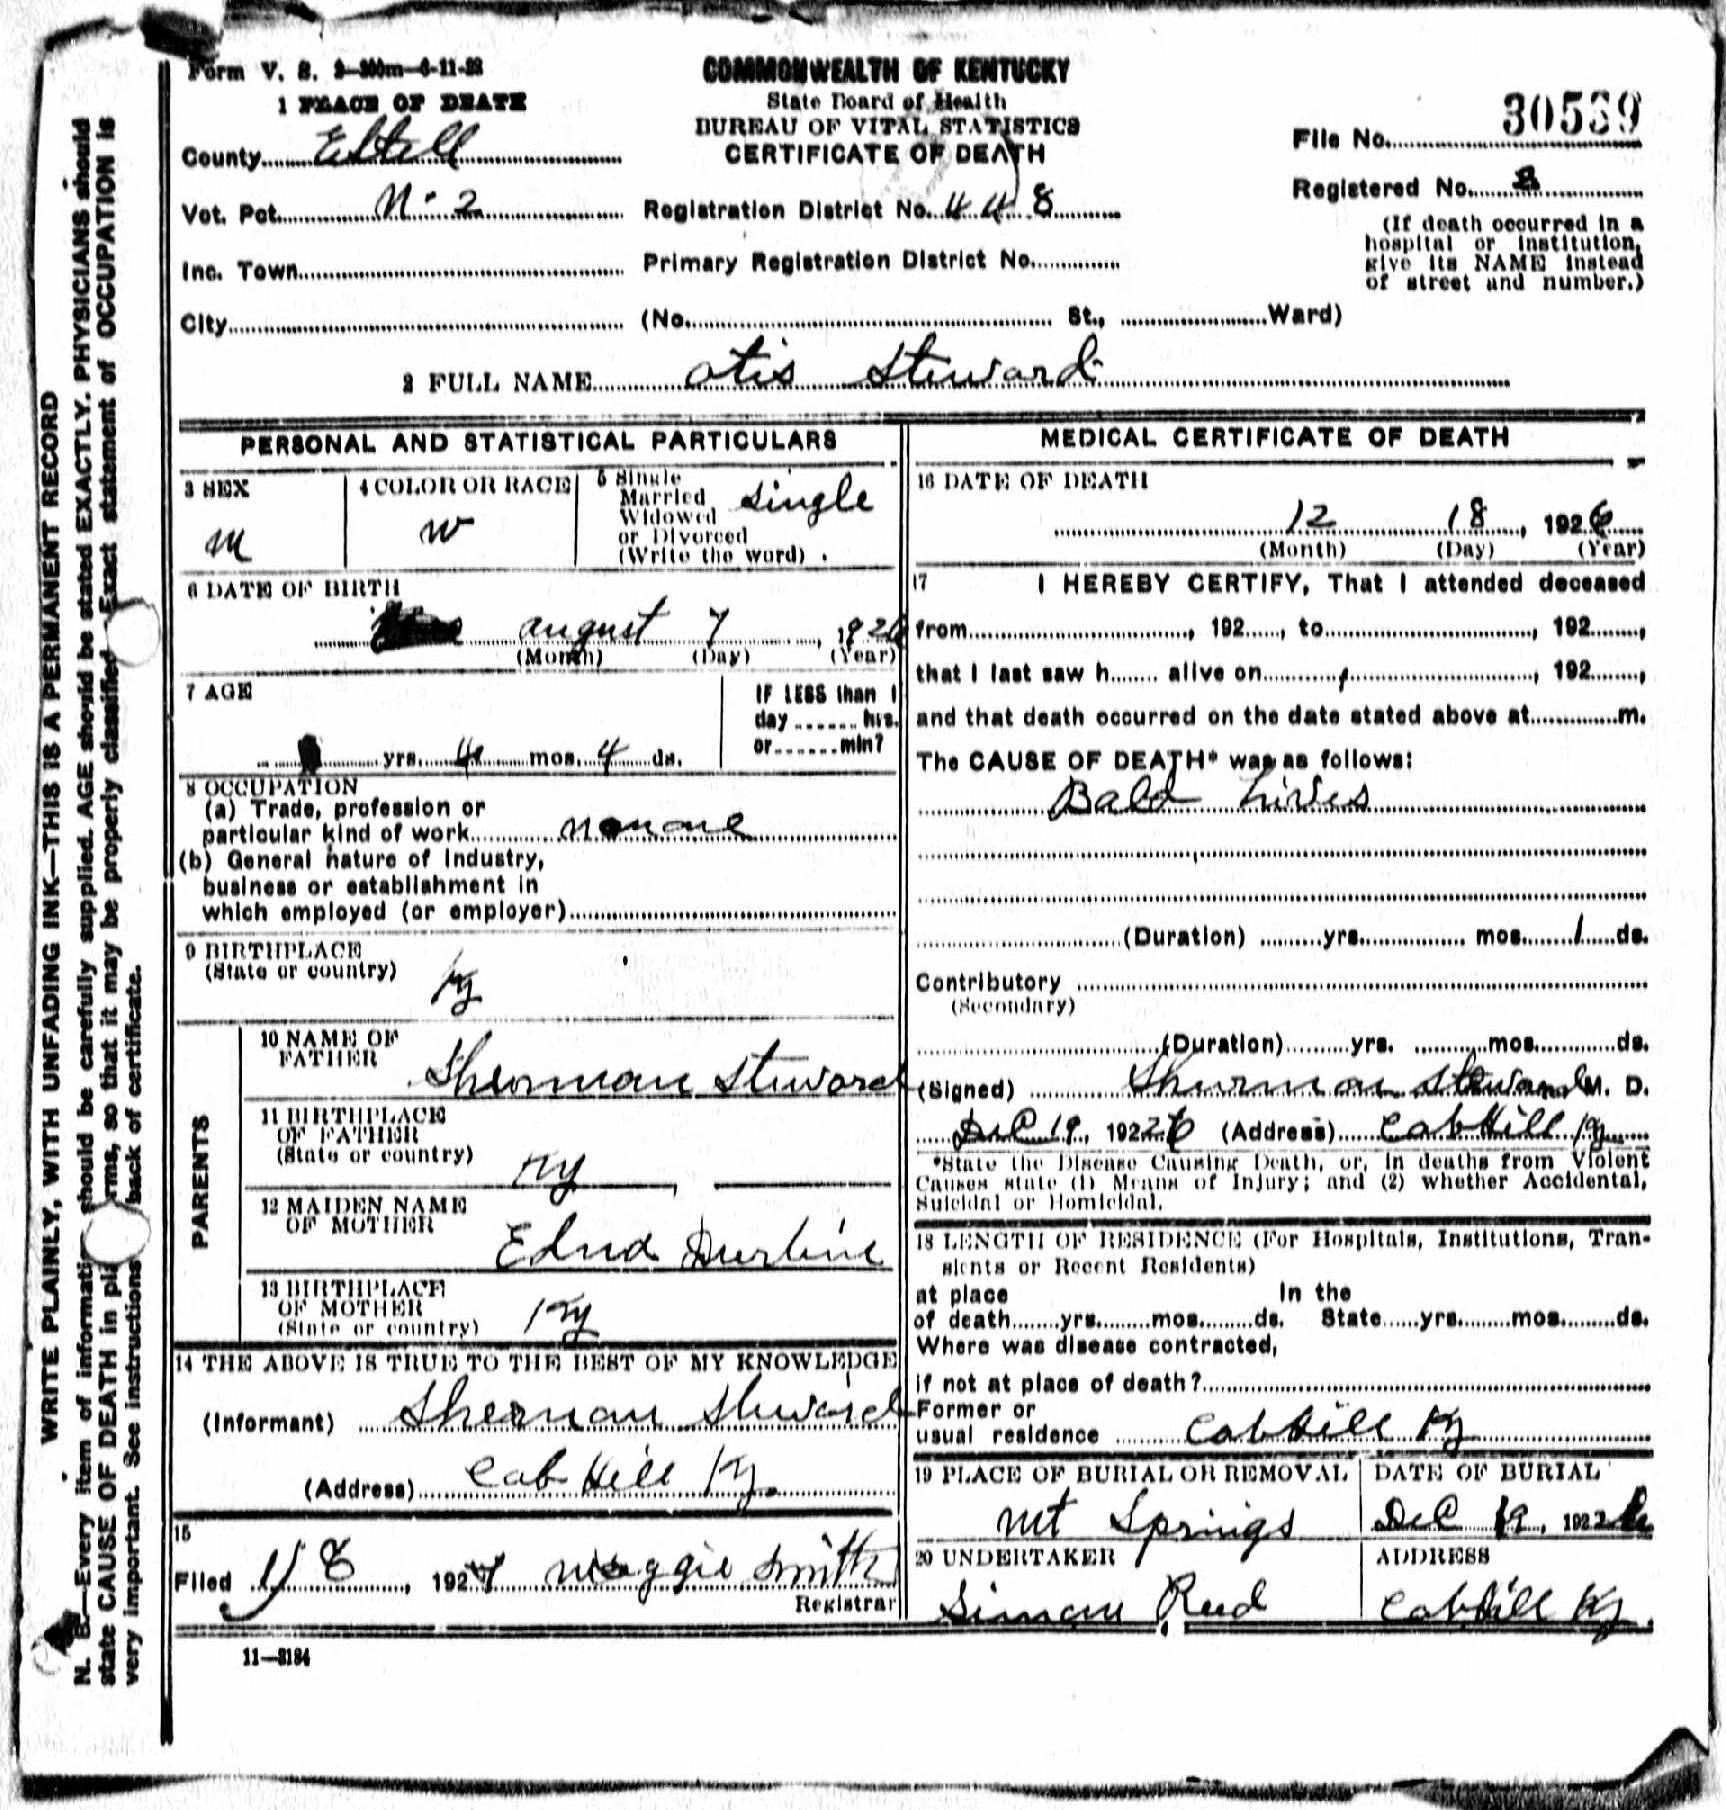 Form V. S. 2-300m-4-11-23
COMMONWEALTH OF KENTUCKY
State Board of Health
BUREAU OF VITAL STATISTICS
CERTIFICATE OF DEATH
1 PLACE OF DEATH
County Estell
File No. 30539
Registered No. 8
Vot. Pct. N. 2
Registration District No. 448
(If death occurred in a
hospital or institution,
give its NAME instead
of street and number.)
Inc. Town
Primary Registration District No.
City
(No. St., Ward)
2 FULL NAME otis Steward
PERSONAL AND STATISTICAL PARTICULARS
3 SEX
m
4 COLOR OR RACE
w
5 Single
Married
Widowed
or Divorced
(Write the word)
single
6 DATE OF BIRTH
august 7, 1926
(Month) (Day) (Year)
7 AGE
yrs. 4 mos. 4 ds.
IF LESS than 1
day hrs.
or min?
8 OCCUPATION
(a) Trade, profession or
particular kind of work
(b) General nature of Industry,
business or establishment in
which employed (or employer)
9 BIRTHPLACE
(State or country)
Ky
PARENTS
10 NAME OF
FATHER
Sherman Steward
11 BIRTHPLACE
OF FATHER
(State or country)
Ky
12 MAIDEN NAME
OF MOTHER
Edna Durbine
13 BIRTHPLACE
OF MOTHER
(State or country)
Ky
14 THE ABOVE IS TRUE TO THE BEST OF MY KNOWLEDGE
(Informant) Sherman Steward
(Address) Cab Hill Ky.
15
Filed 1/8, 1927 Maggie Smith
Registrar
11-3184
MEDICAL CERTIFICATE OF DEATH
16 DATE OF DEATH
12 18, 1926
(Month) (Day) (Year)
17 I HEREBY CERTIFY, That I attended deceased
from, 192, to, 192,
that I last saw h alive on, 192,
and that death occurred on the date stated above at m.
The CAUSE OF DEATH* was as follows:
Bald hives
(Duration) yrs. mos. 1 ds.
Contributory
(Secondary)
(Duration) yrs. mos. ds.
(Signed) Shurman Steward M. D.
Dec 19, 1926 (Address) Cab Hill Ky
*State the Disease Causing Death, or, in deaths from Violent
Causes state (1) Means of Injury; and (2) whether Accidental,
Suicidal or Homicidal.
18 LENGTH OF RESIDENCE (For Hospitals, Institutions, Tran-
sients or Recent Residents)
at place In the
of death yrs. mos. ds. State yrs. mos. ds.
Where was disease contracted,
if not at place of death?
Former or
usual residence Cab Hill Ky
19 PLACE OF BURIAL OR REMOVAL
Mt Springs
DATE OF BURIAL
Dec 19, 1926
20 UNDERTAKER
Simon Reed
ADDRESS
Cab Hill Ky.
WRITE PLAINLY, WITH UNFADING INK—THIS IS A PERMANENT RECORD
N. B.—Every item of information should be carefully supplied. AGE should be stated EXACTLY. PHYSICIANS should
state CAUSE OF DEATH in terms, so that it may be properly classified. Exact statement of OCCUPATION is
very important. See instructions back of certificate.